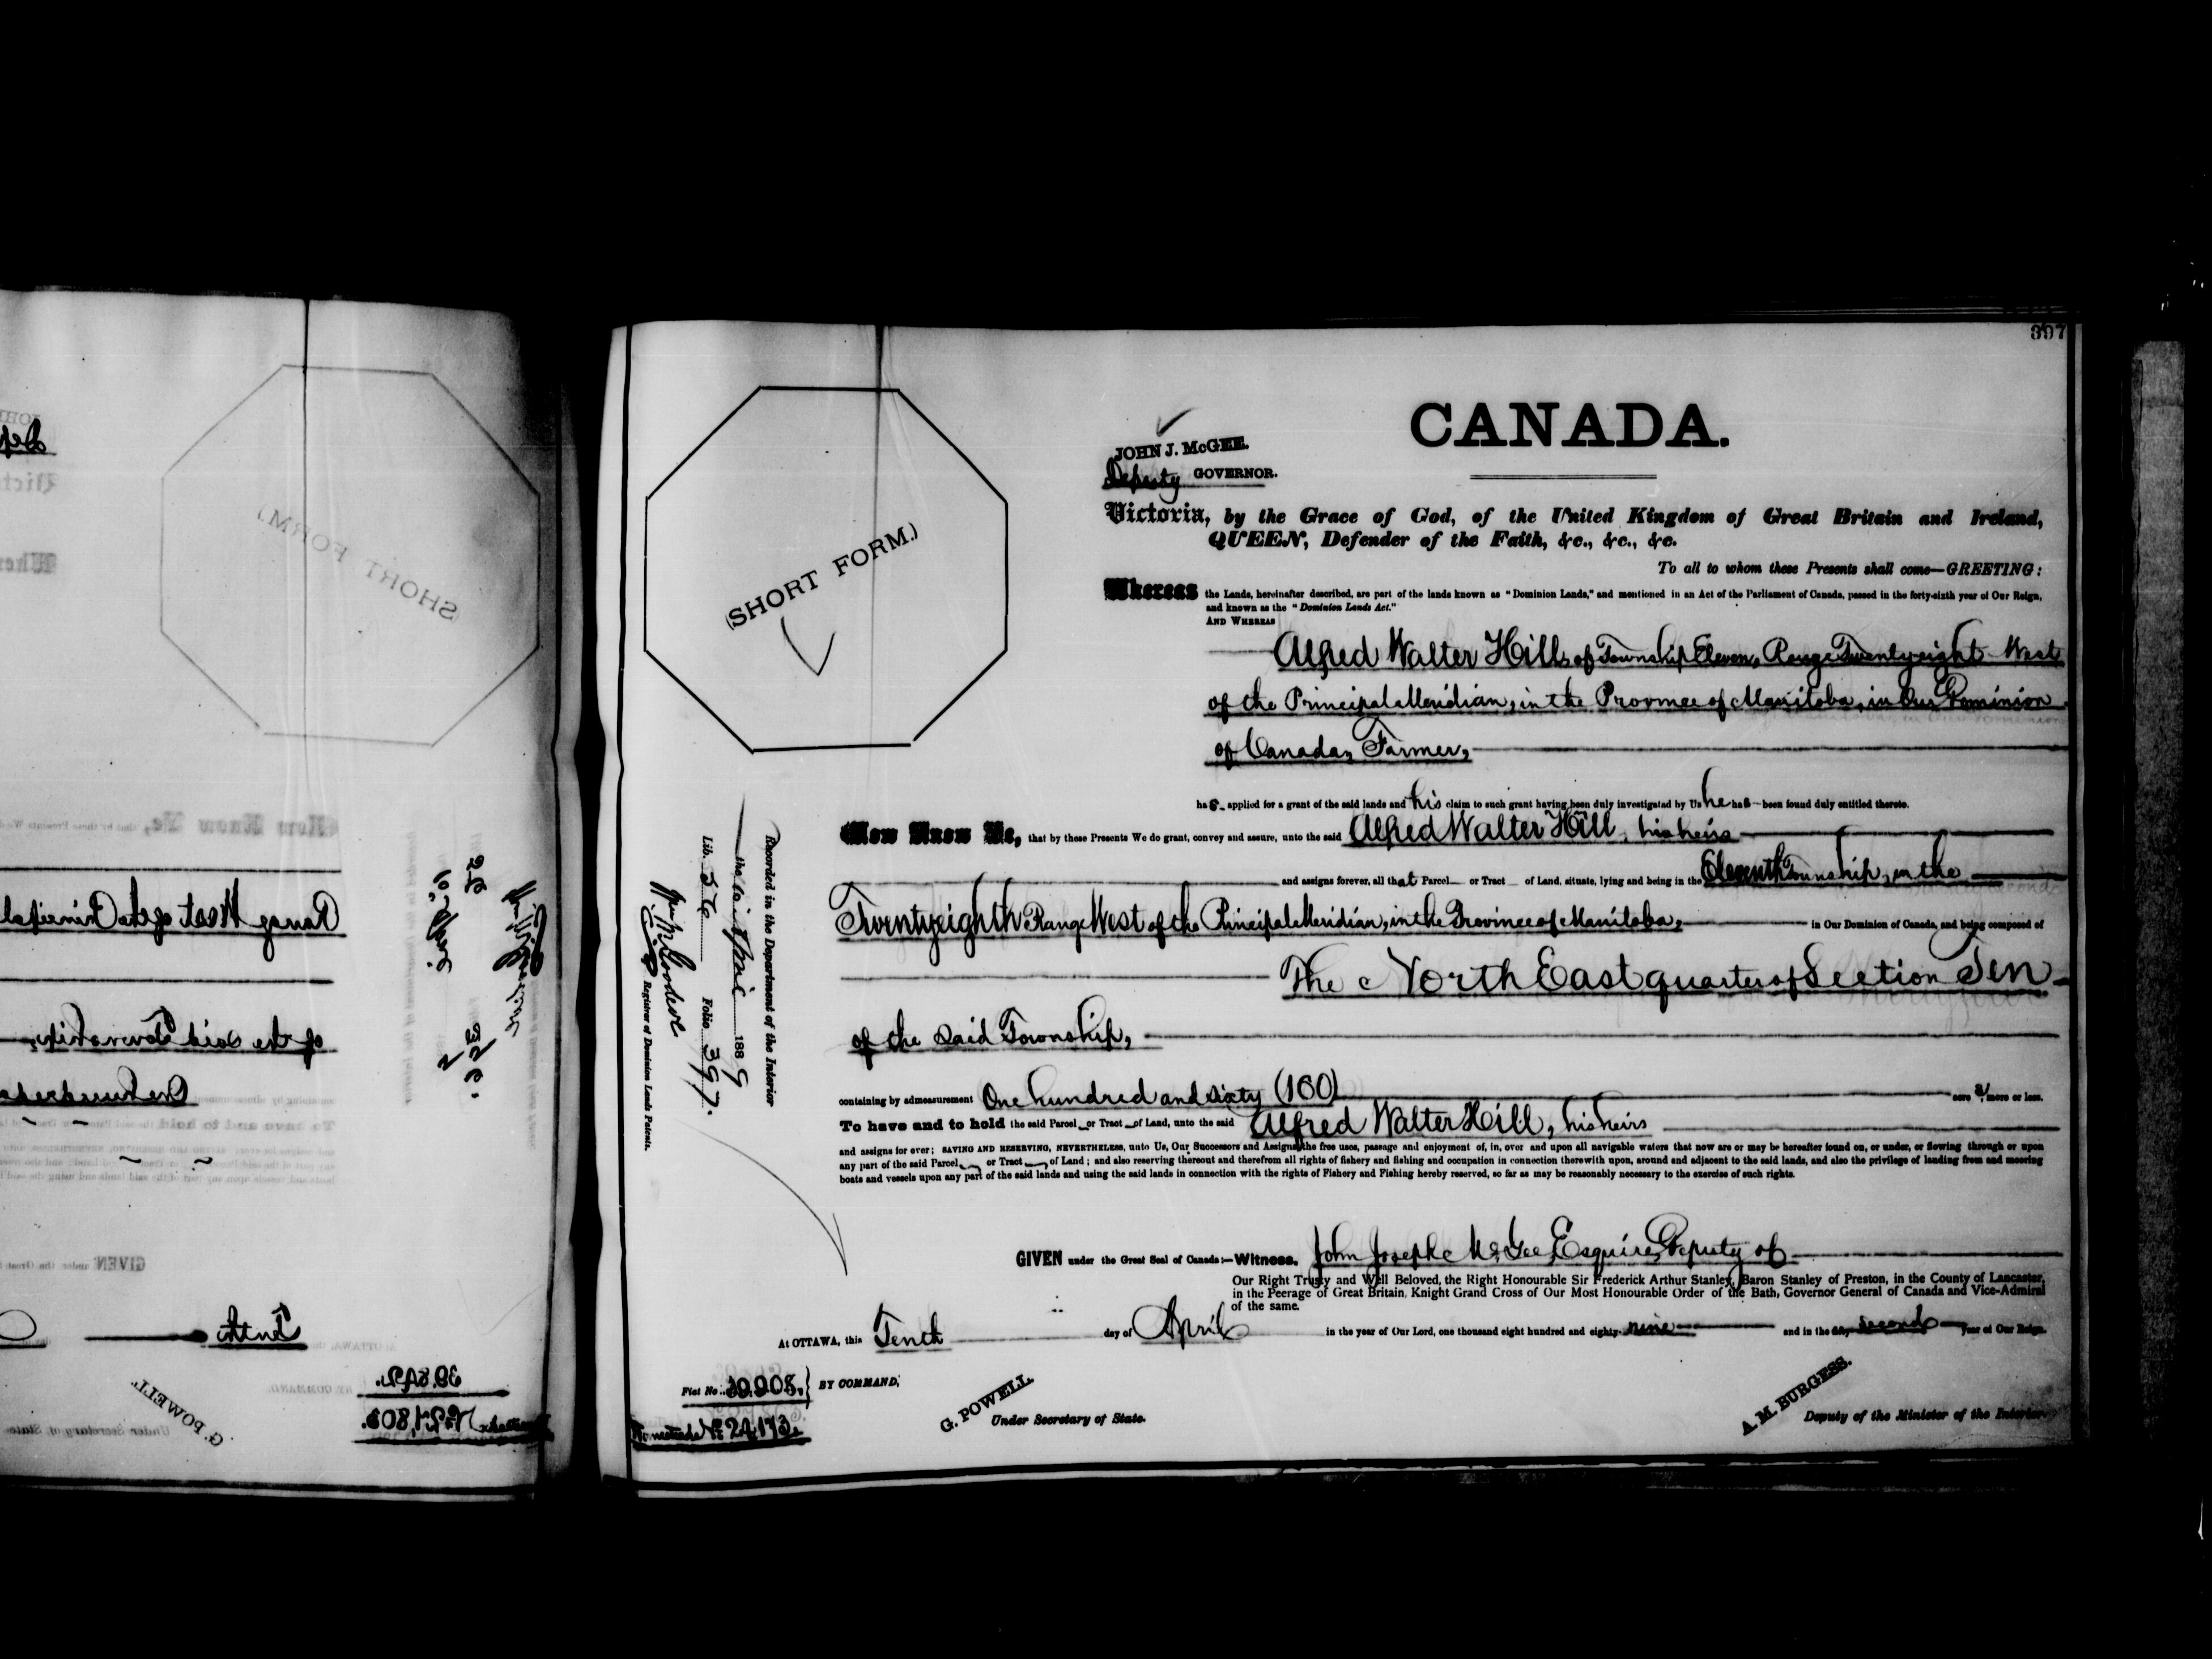 397
CANADA.
JOHN J. McGEE.
Deputy GOVERNOR.
(SHORT FORM.)
Victoria, by the Grace of God, of the United Kingdom of Great Britain and Ireland,
QUEEN, Defender of the Faith, &c., &c., &c.
To all to whom these Presents shall come—GREETING:
Whereas the Lands, hereinafter described, are part of the lands known as "Dominion Lands," and mentioned in an Act of the Parliament of Canada, passed in the forty-sixth year of Our Reign,
and known as the "Dominion Lands Act."
AND WHEREAS
Alfred Walter Hill, of Township Eleven, Range Twentyeight West
of the Principal Meridian, in the Province of Manitoba, in Our Dominion
of Canada, Farmer,
has applied for a grant of the said lands and his claim to such grant having been duly investigated by Us he has been found duly entitled thereto.
Now Know Ye, that by these Presents We do grant, convey and assure, unto the said Alfred Walter Hill, his heirs
and assigns forever, all that Parcel or Tract of Land, situate, lying and being in the Eleventh Township, in the
Twentyeighth Range West of the Principal Meridian, in the Province of Manitoba, in Our Dominion of Canada, and being composed of
The North East quarter of Section Ten
of the said Township,
containing by admeasurement One hundred and sixty (160) acres, more or less.
To have and to hold the said Parcel or Tract of Land, unto the said Alfred Walter Hill, his heirs
and assigns for ever; SAVING AND RESERVING, NEVERTHELESS, unto Us, Our Successors and Assigns, the free uses, passage and enjoyment of, in, over and upon all navigable waters that now are or may be hereafter found on, or under, or flowing through or upon
any part of the said Parcel or Tract of Land; and also reserving thereout and therefrom all rights of fishery and fishing and occupation in connection therewith upon, around and adjacent to the said lands, and also the privilege of landing from and mooring
boats and vessels upon any part of the said lands and using the said lands in connection with the rights of Fishery and Fishing hereby reserved, so far as may be reasonably necessary to the exercise of such rights.
GIVEN under the Great Seal of Canada:—Witness, John Joseph McGee, Esquire, Deputy of
Our Right Trusty and Well Beloved, the Right Honourable Sir Frederick Arthur Stanley, Baron Stanley of Preston, in the County of Lancaster,
in the Peerage of Great Britain, Knight Grand Cross of Our Most Honourable Order of the Bath, Governor General of Canada and Vice-Admiral
of the same.
At OTTAWA, this Tenth day of April in the year of Our Lord, one thousand eight hundred and eighty-nine and in the second year of Our Reign.
BY COMMAND,
Fiat No.
Homestead No.
G. POWELL.
Under Secretary of State.
A. M. BURGESS.
Deputy of the Minister of the Interior
Recorded in the Department of the Interior
the 10 April 1889
Lib. 56 Folio 397.
Registrar of Dominion Lands Patents.